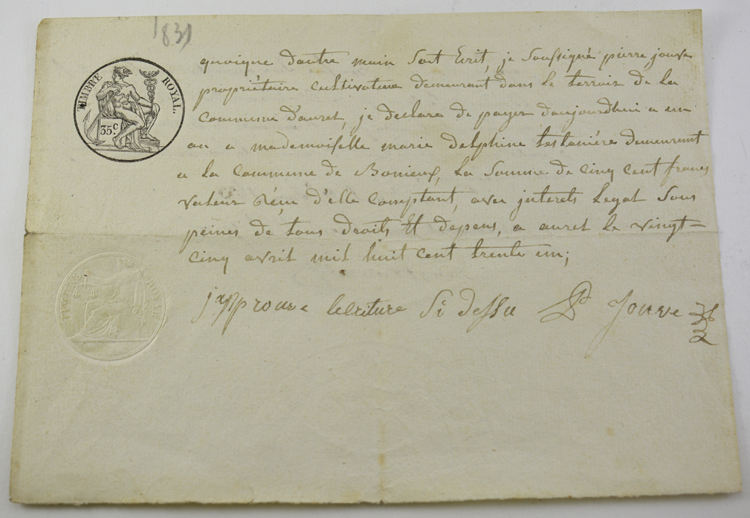 1831
TIMBRE ROYAL.
35 C.
quoique d'autre main soit Ecrit, je soussigné pierre jouve
propriétaire cultivateur demeurant dans le terroir de la
Commune d'auret, je déclare de payer d'aujourdhui a un
an a mademoiselle marie delphine tertanière demeurant
a la Commune de Bonieux, la Somme de cinq cent francs
valeur Réçue d'elle comptant, avec interets legal Sous
peines de tous droits Et depens, a auret le vingt-
cinq avril mil huit cent trente un;
japprouve lecriture Si dessu P Jouve